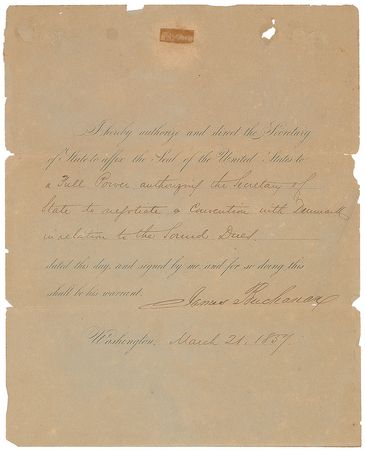 I hereby authorize and direct the Secretary
of State to affix the Seal of the United States to
a Full Power authorizing the Secretary of
State to negotiate a Convention with Denmark
in relation to the Sound Dues.
dated this day, and signed by me and for so doing this
shall be his warrant.
James Buchanan
Washington, March 21, 1857.